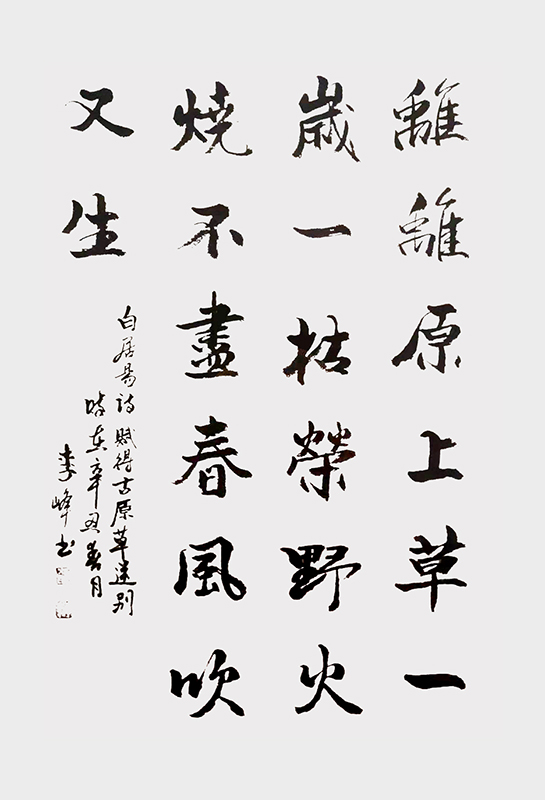 離離原上草一
歲一枯榮野火
燒不盡春風吹
又生
白居易詩賦得古原草送別
時在辛丑春月
李峰书